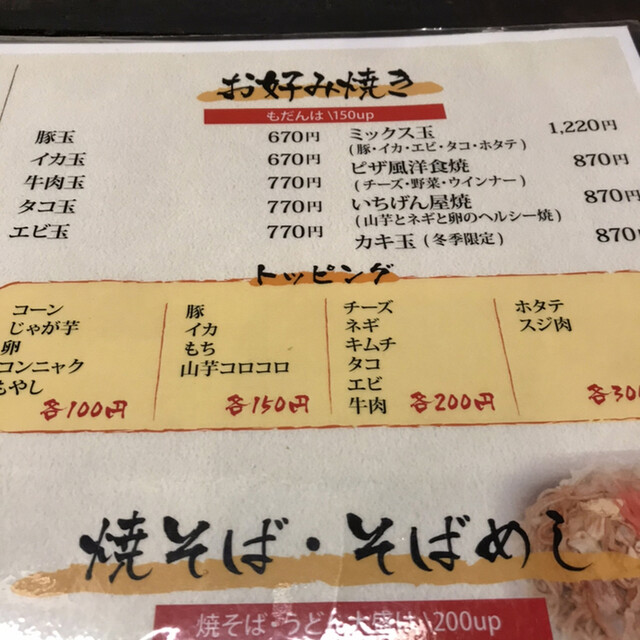 お好み焼き
もだんは \150up
豚玉 670円
イカ玉 670円
牛肉玉 770円
タコ玉 770円
エビ玉 770円
ミックス玉 1,220円
(豚・イカ・エビ・タコ・ホタテ)
ピザ風洋食焼 870円
(チーズ・野菜・ウインナー)
いちげん屋焼 870円
(山芋とネギと卵のヘルシー焼)
カキ玉 (冬季限定) 870
トッピング
コーン
じゃが芋
卵
コンニャク
もやし
各100円
豚
イカ
もち
山芋コロコロ
各150円
チーズ
ネギ
キムチ
タコ
エビ
牛肉
各200円
ホタテ
スジ肉
各300
焼そば・そばめし
焼そば・うどん大盛は \200up